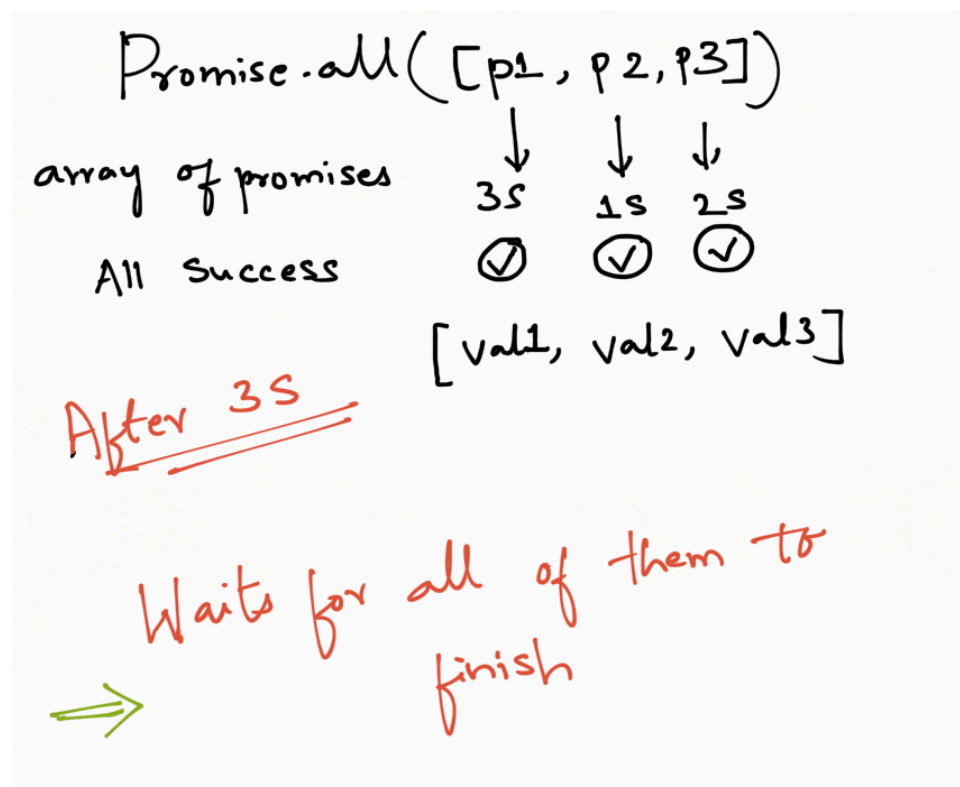 Promise.all([p1, p2, p3])
array of promises
3S 1S 2S
All Success
[val1, val2, val3]
After 3S
Waits for all of them to
finish